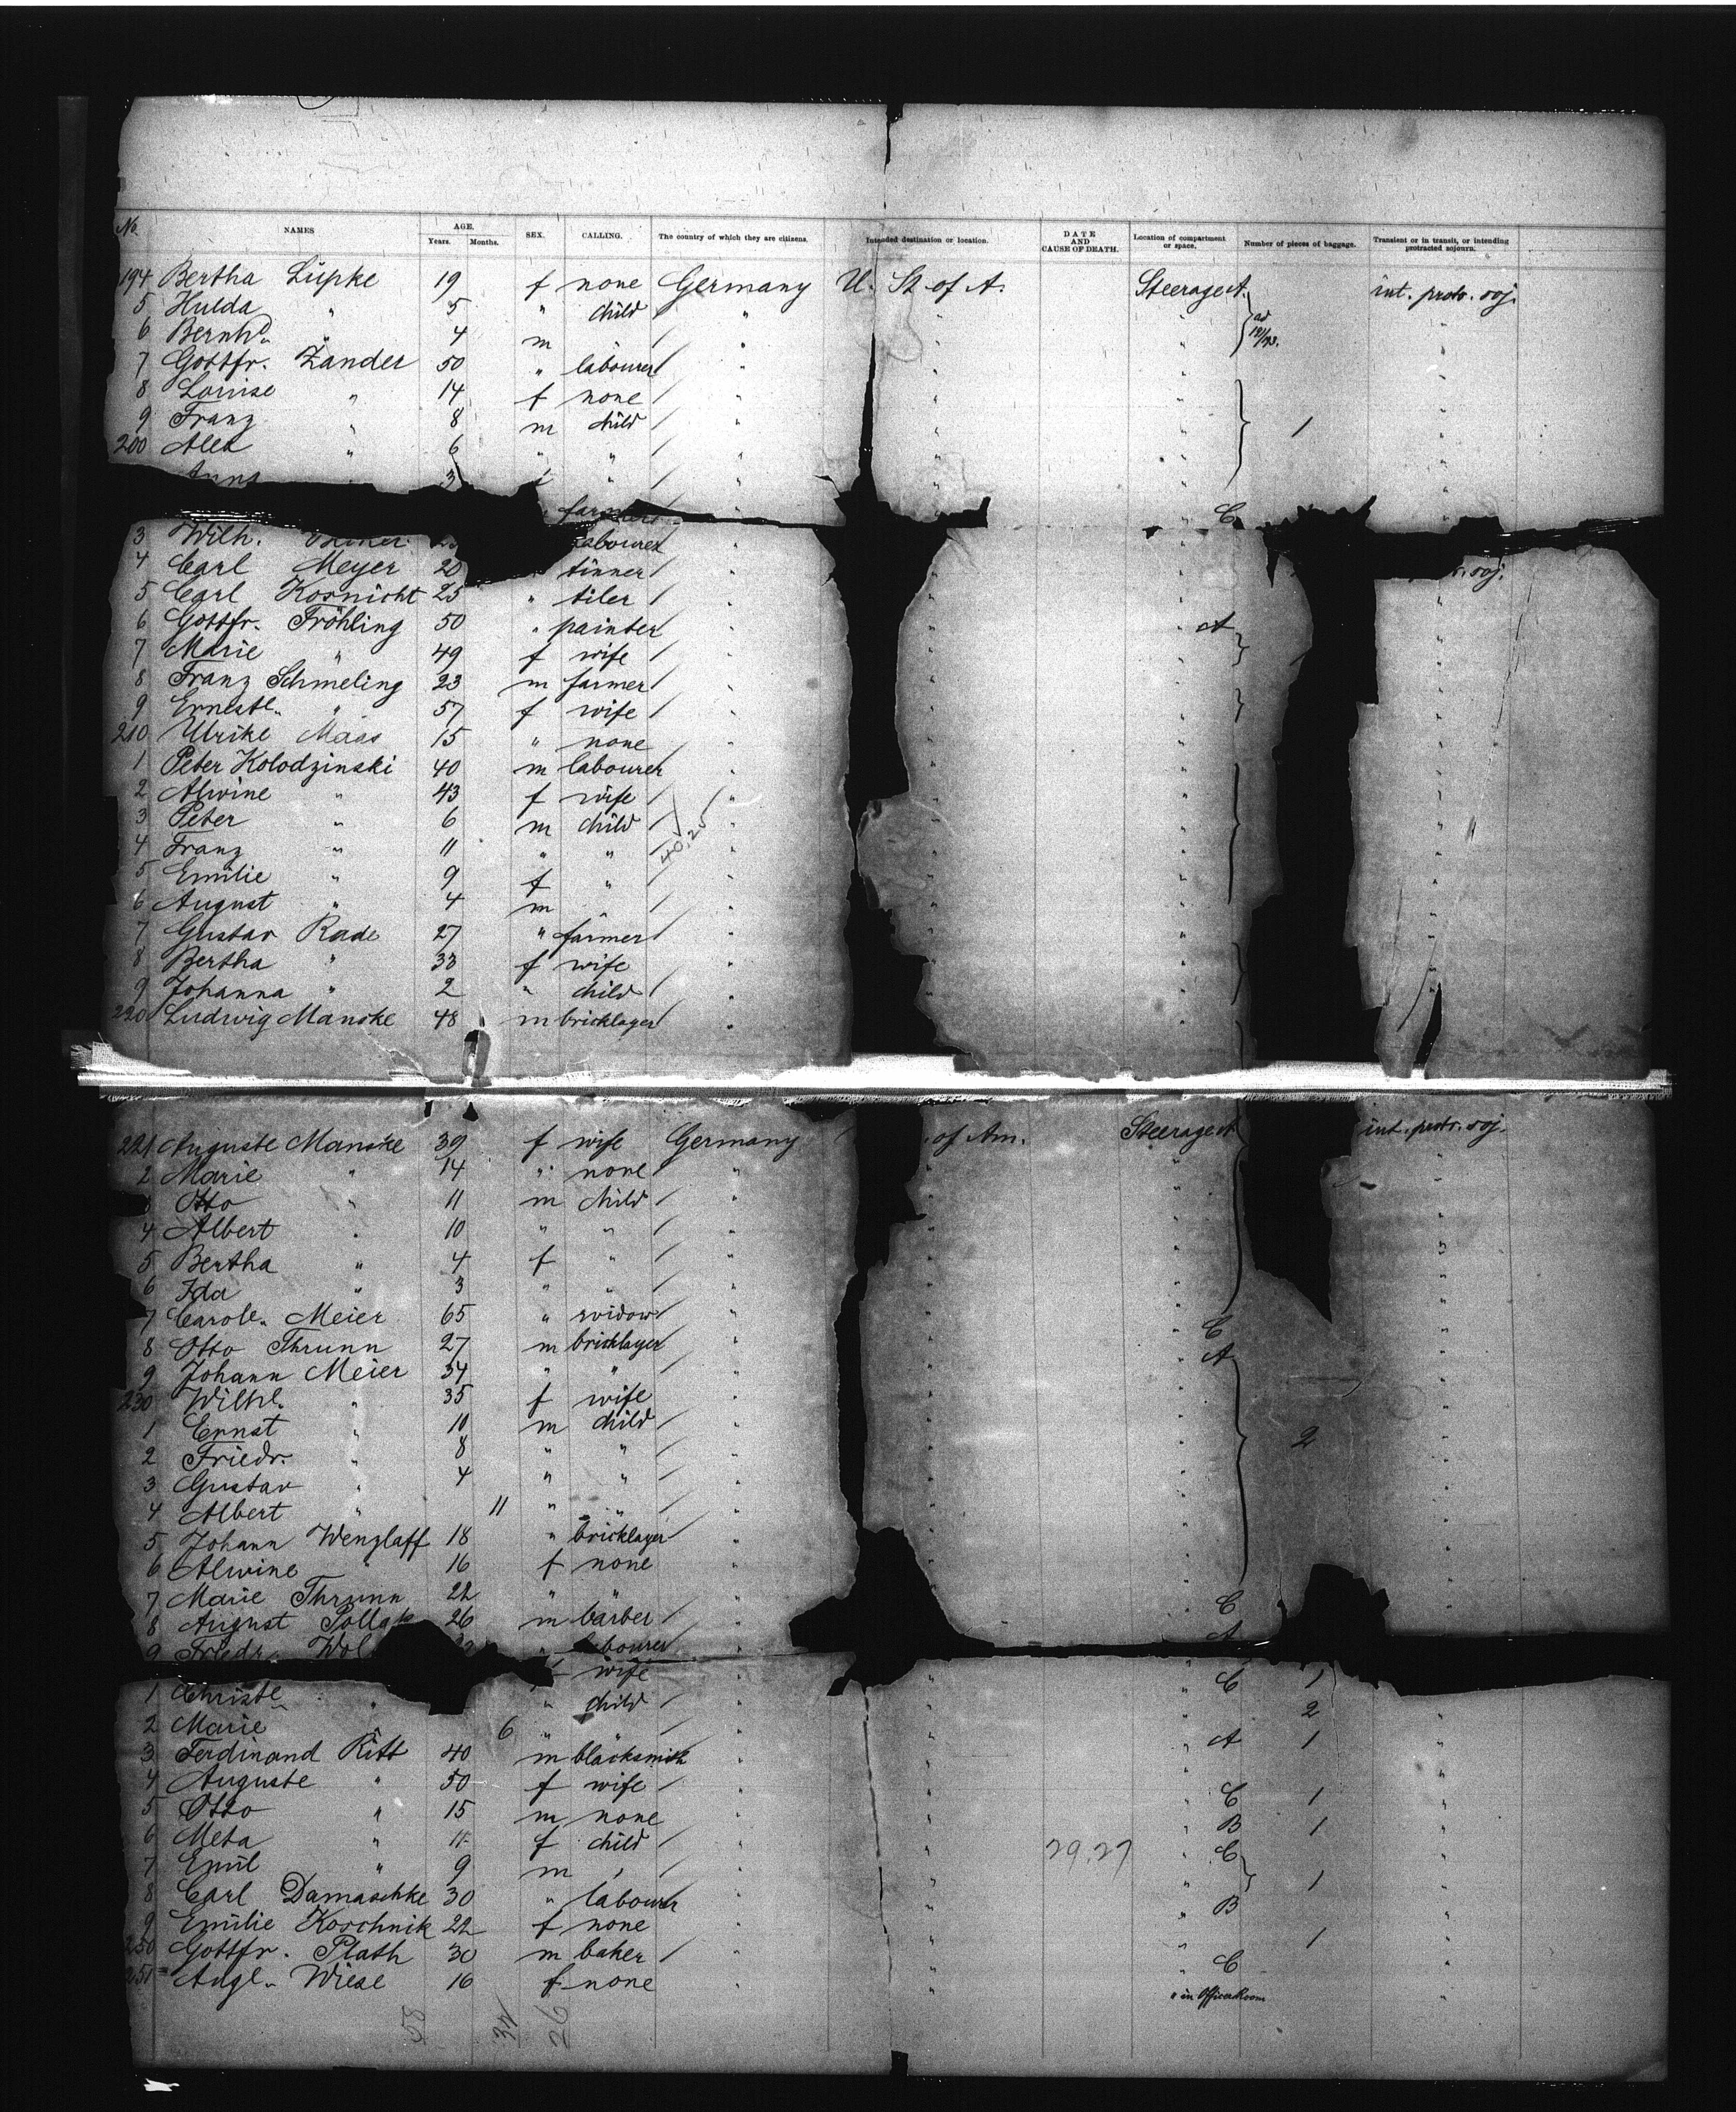 No. NAMES AGE. Years. Months. SEX. CALLING. The country of which they are citizens. Intended destination or location. DATE AND CAUSE OF DEATH. Location of compartment or space. Number of pieces of baggage. Transient or in transit, or intending protracted sojourn.
194 Bertha Lüpke 19 f none Germany U. St. of A. Steerage A. int. protr. soj.
5 Hulda " 5 " child / " " "
6 Bernhd. " 4 m / " " "
7 Gottfr. Zander 50 " labourer / " " "
8 Louise " 14 f none / " " "
9 Franz " 8 m child / " " " 1 "
200 Alex " 6 " " / " " "
Anna 3 f " / " " "
" farmer C
3 Wilh. labourer "
4 Carl Meyer 20 " tinner / " soj.
5 Carl Kosnicht 25 " tiler / " " "
6 Gottfr. Fröhling 50 " painter / " " " A "
7 Marie " 49 f wife / " " " "
8 Franz Schmeling 23 m farmer / " " " "
9 Ernestl. " 57 f wife / " " " "
210 Ulrike Maas 15 " none " " " "
1 Peter Kolodzinski 40 m labourer " " " "
2 Alwine " 43 f wife / " " " "
3 Peter " 6 m child / " " " "
4 Franz " 11 " " / 40,25 " " " "
5 Emilie " 9 f " / " " " "
6 August " 4 m / " " " "
7 Gustav Rade 27 " farmer / " " " "
8 Bertha " 33 f wife " " " "
9 Johanna " 2 " child / " " " "
220 Ludwig Manske 48 m bricklager "
221 Auguste Manske 39 f wife Germany of Am. Steerage A int. protr. soj.
2 Marie " 14 " none " " " "
Otto " 11 m child / " " " "
4 Albert " 10 " " / " " " "
5 Bertha " 4 f " / " " " "
6 Ida " 3 " " / " " " "
7 Carole. Meier 65 " widow / " " " C "
8 Otto Thrunn 27 m bricklager / " " " A "
9 Johann Meier 34 " " / " " " "
230 Wilhl. " 35 f wife " " " "
1 Ernst " 10 m child / " " " "
2 Friedr. " 8 " " / " " " 2 "
3 Gustav " 4 " " / " " " "
4 Albert " 11 " " / " " " "
5 Johann Wenzlaff 18 " bricklager / " " " "
6 Alwine " 16 f none " " " "
7 Marie Thrunn 22 " " " " " C "
8 August Pollak 26 m barber / " " " A "
9 Friedr. Wol labourer / "
wife " " " C 1
1 Christl. " " child / " " " 2 "
2 Marie 6 " " / " " " A 1 "
3 Ferdinand Ritt 40 m blacksmith " " " "
4 Auguste " 50 f wife / " " " C 1 "
5 Otto " 15 m none " " " B 1 "
6 Meta " 11 f child / " " 29,27 " C "
7 Emil " 9 m " / " " " 1 "
8 Carl Damaschke 30 " labourer " " " B "
9 Emilie Koschnik 22 f none " " " 1 "
250 Gottfr. Plath 30 m baker / " " " C "
251 Augl. Wiese 16 f none " " " in Officer Room "
58 34 26